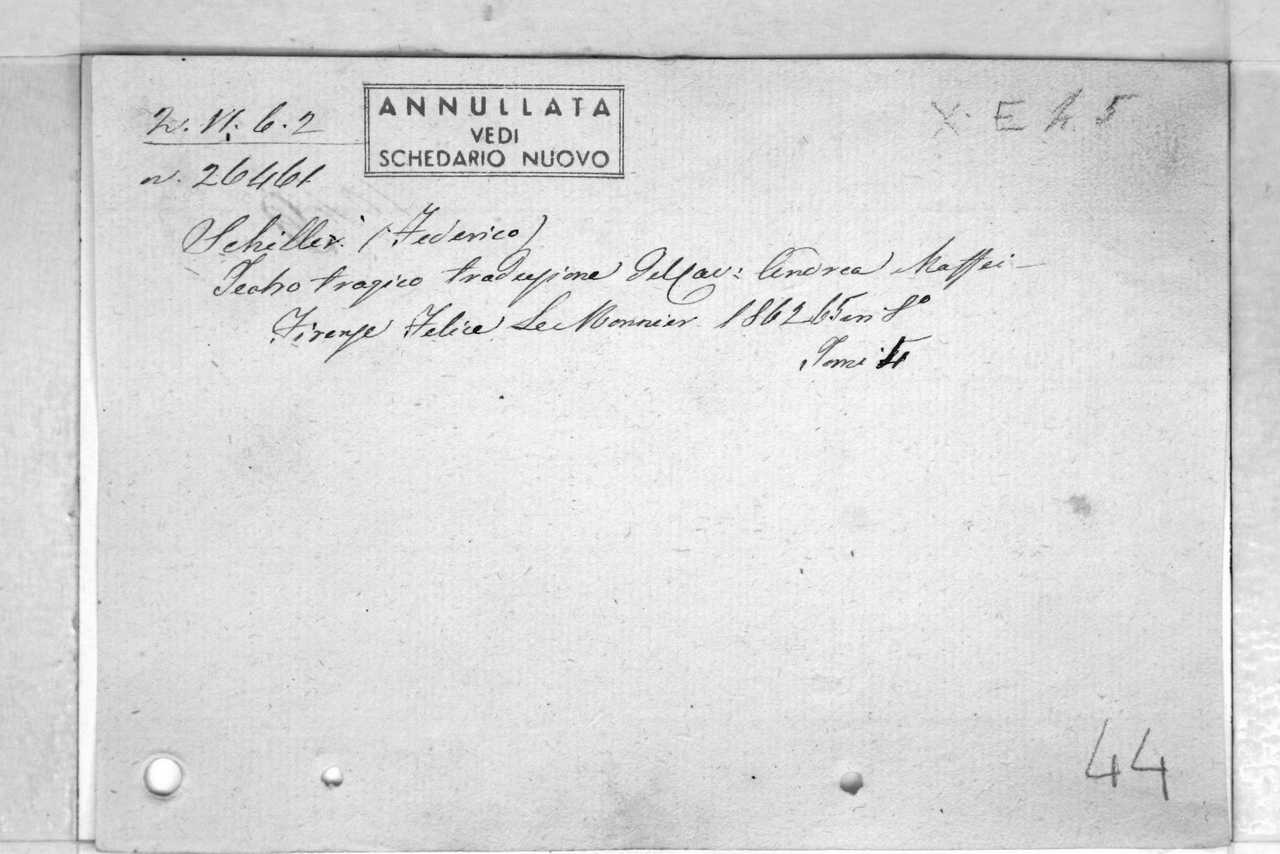 2. VI. 6. 2
ANNULLATA
VEDI
SCHEDARIO NUOVO
X. E h. 5
n. 26461
Schiller (Federico)
Teatro tragico traduzione del Cav: Andrea Maffei –
Firenze Felice Le Monnier 1862 65 in 8º
Tomi
44